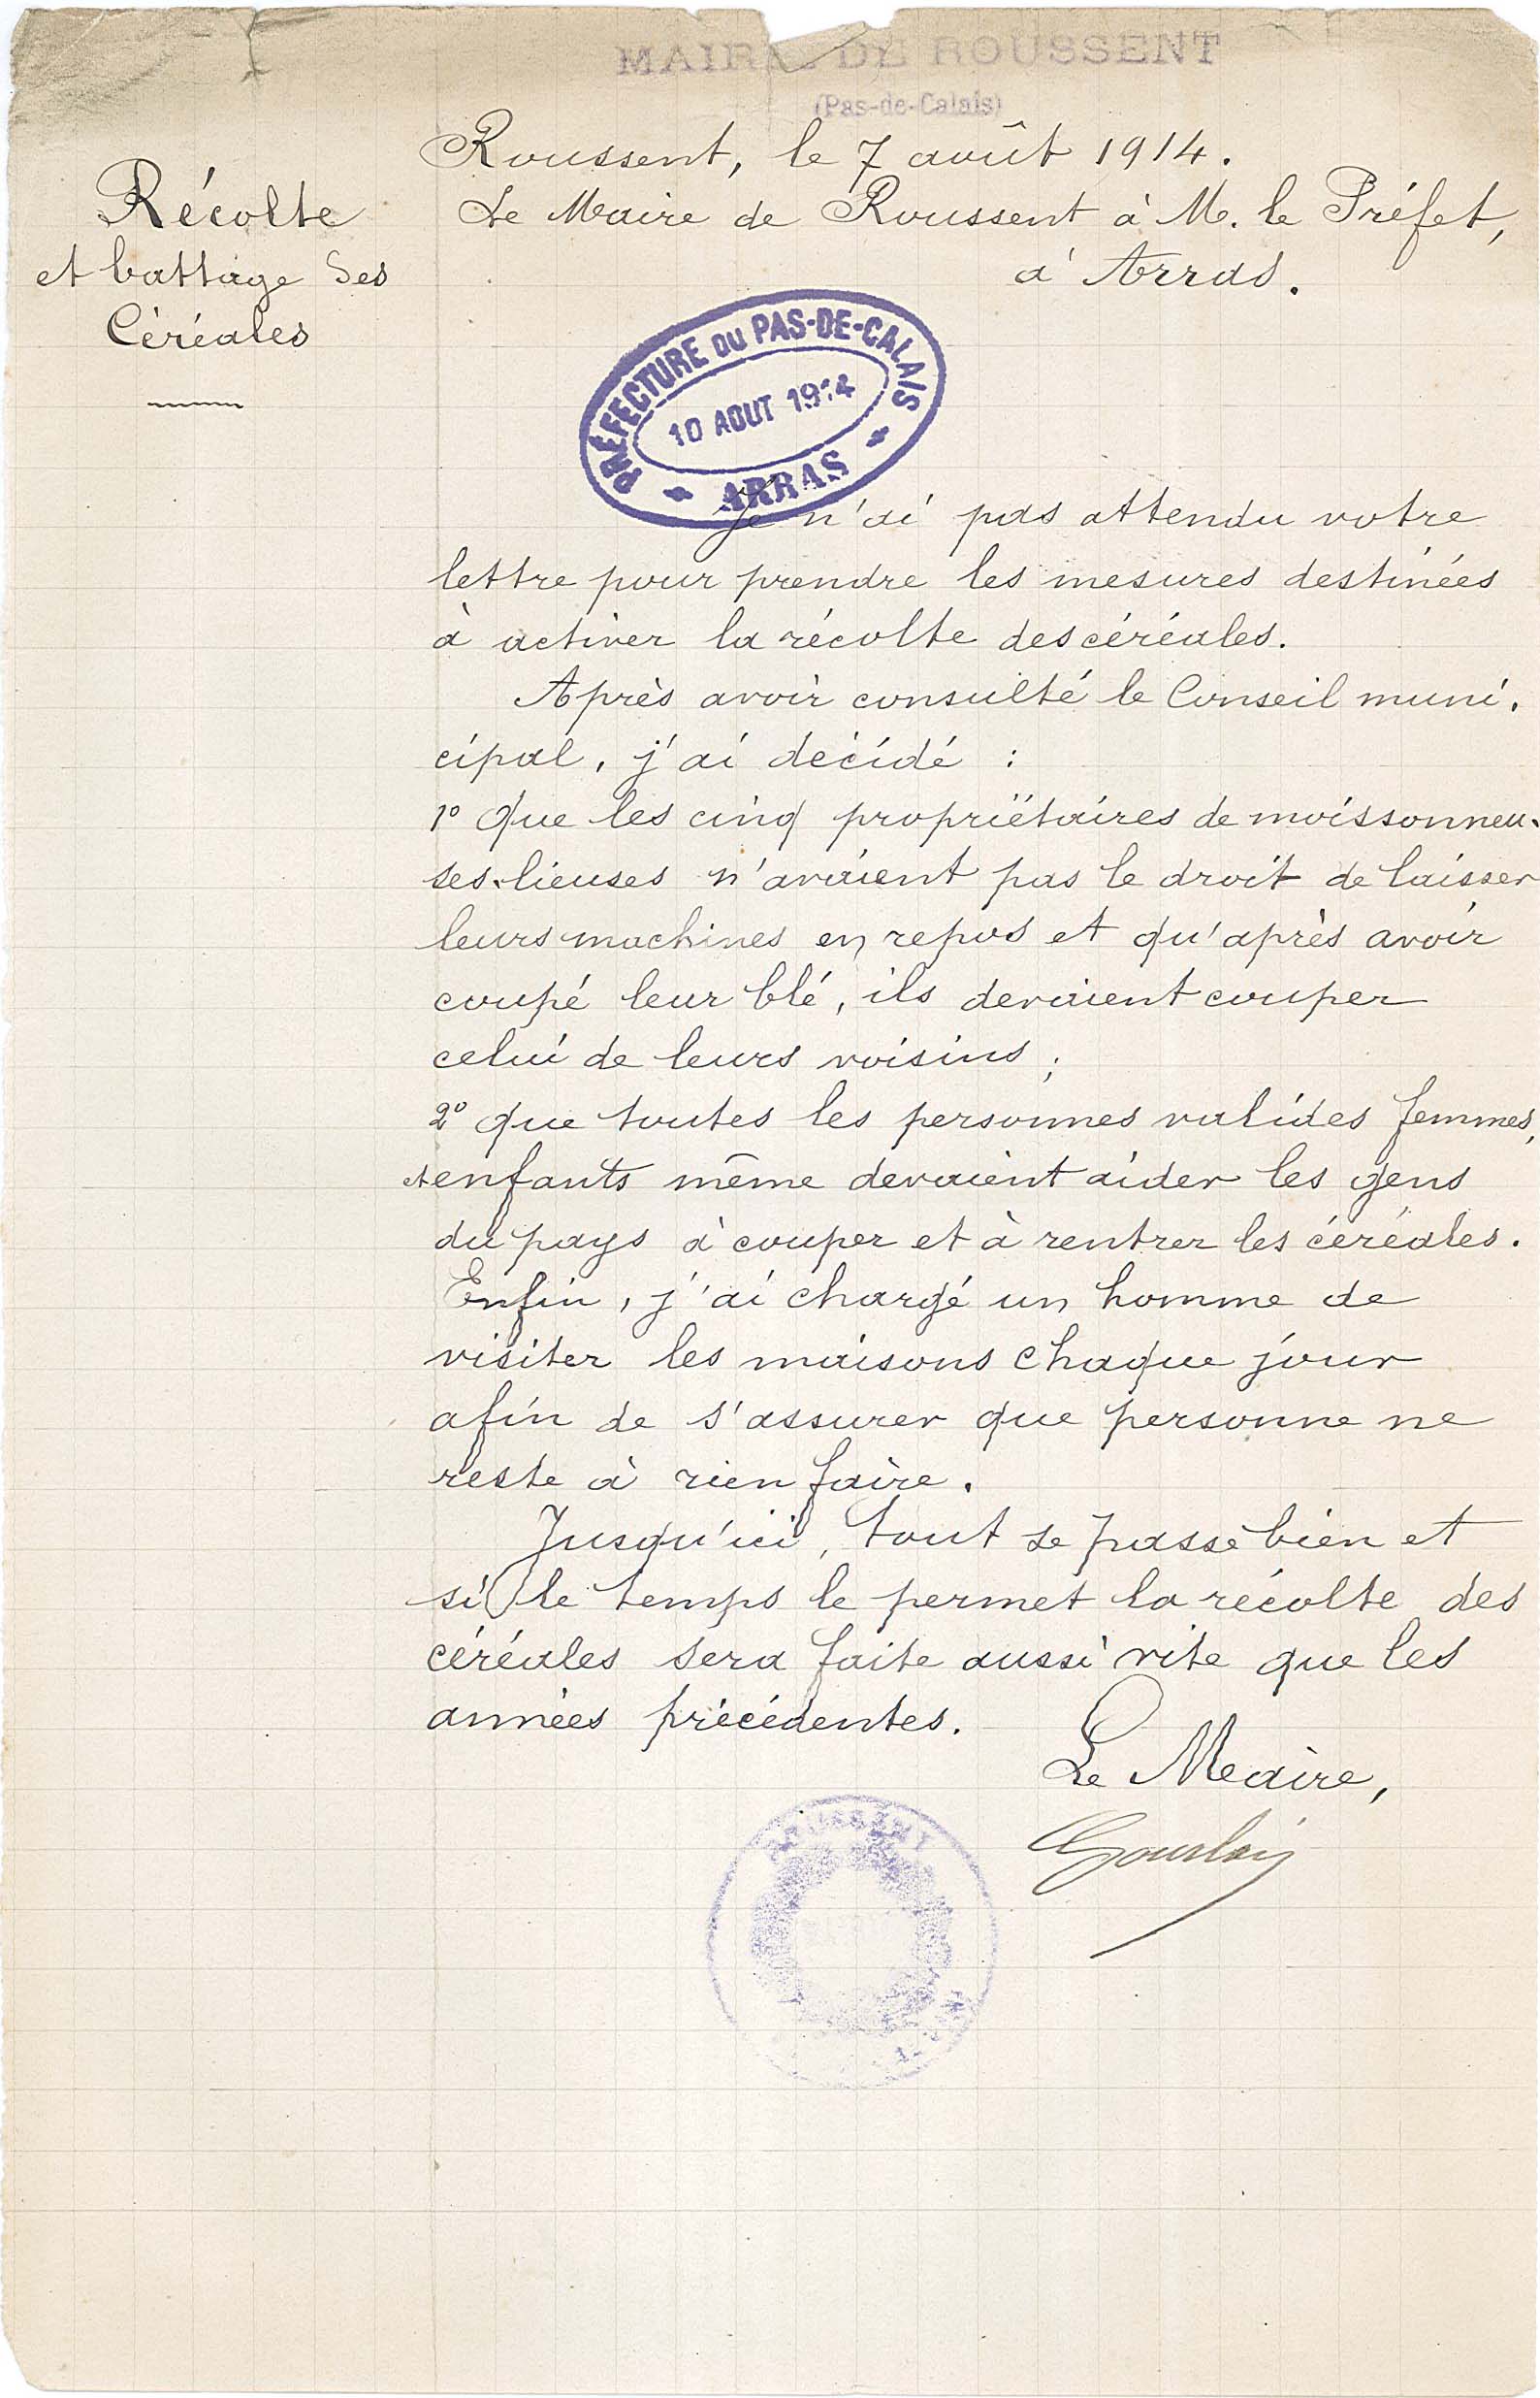 MAIRIE DE ROUSSENT
(Pas-de-Calais)
Roussent, le 7 août 1914.
Récolte
et battage des
Céréales
Le Maire de Roussent à M. le Préfet,
à Arras.
PRÉFECTURE DU PAS-DE-CALAIS
10 AOUT 1914
ARRAS
Je n'ai pas attendu votre
lettre pour prendre les mesures destinées
à activer la récolte des céréales.
Après avoir consulté le Conseil muni-
cipal, j'ai décidé :
1º que les cinq propriétaires de moissonneu-
ses-lieuses n'avaient pas le droit de laisser
leurs machines en repos et qu'après avoir
coupé leur blé, ils devaient couper
celui de leurs voisins ;
2º que toutes les personnes valides femmes,
et enfants même devaient aider les gens
du pays à couper et à rentrer les céréales.
Enfin, j'ai chargé un homme de
visiter les maisons chaque jour
afin de s'assurer que personne ne
reste à rien faire.
Jusqu'ici, tout se passe bien et
si le temps le permet la récolte des
céréales sera faite aussi vite que les
années précédentes.
Le Maire,
ROUSSENT